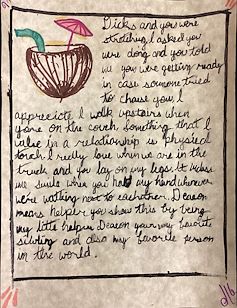 Dicks and you were
stretching I asked you
were doing and you told
me you were getting ready
in case someone tried
to chase you. I
appreciate I walk upstairs when
your on the couch. Something that I
value in a relationship is physical
touch I really love when we are in the
truck and you lay on my legs. It makes
me smile when you hold my hand whenever
were walking next to eachother. Deacon
means helper you show this by being
my little helper. Deacon your my favorite
sibling and also my favorite person
in the world.